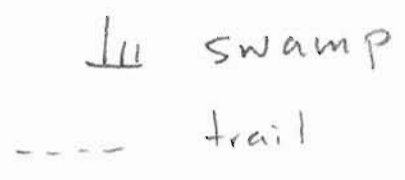 swamp
trail